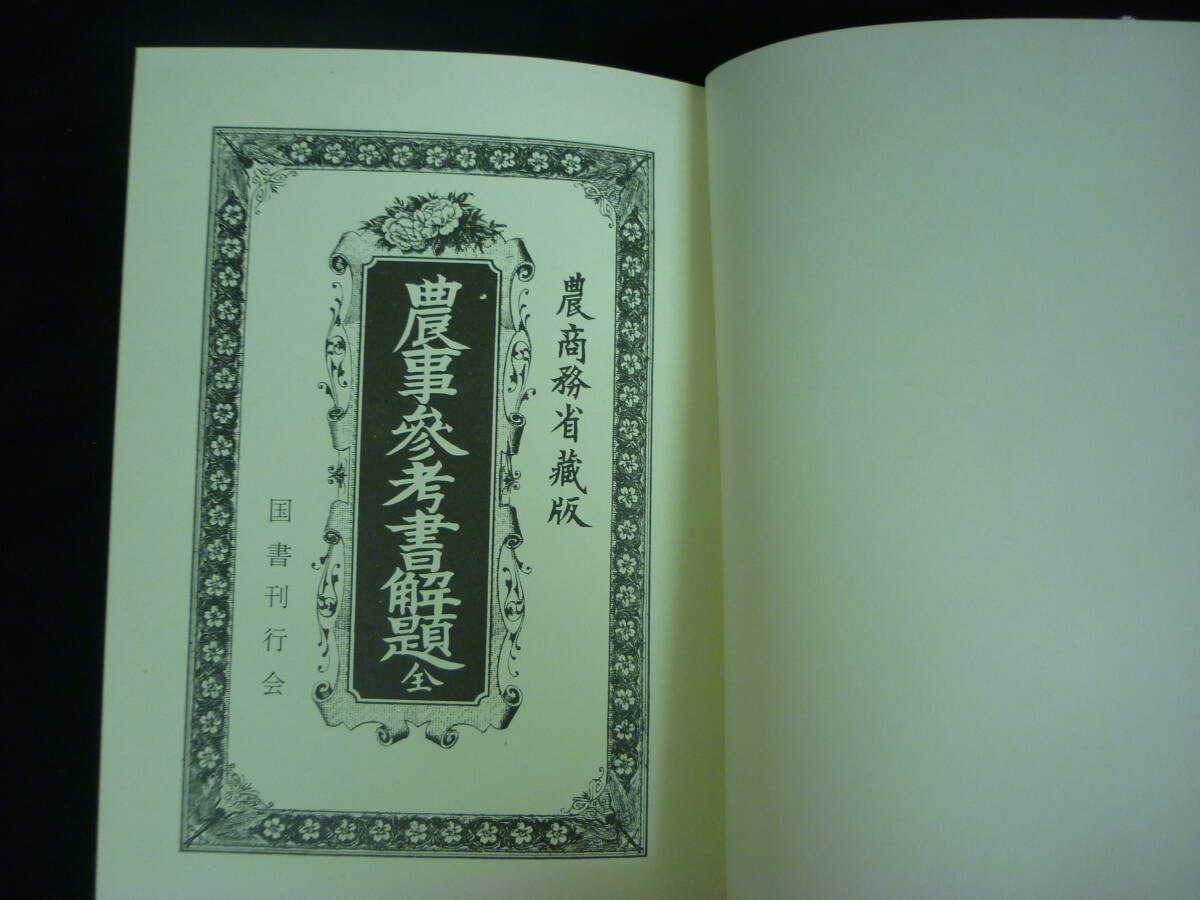 農商務省藏版
農事參考書解題 全
国書刊行会